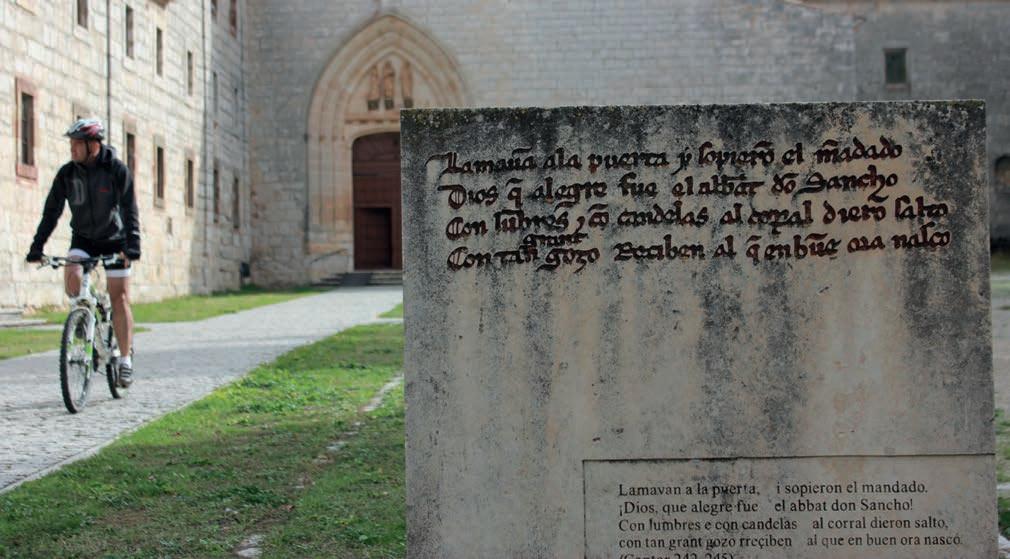 Lamauā ala puerta y sopierō el mādado
Dios q̄ alegre fue el abbat dō Sancho
Con lūbres ⁊ cō candelas al corral dierō salto
grant
Con tan gozo Reciben al q̄ en buē ora nasco
Lamavan a la puerta, i sopieron el mandado.
¡Dios, que alegre fue el abbat don Sancho!
Con lumbres e con candelas al corral dieron salto,
con tan grant gozo rreçiben al que en buen ora nasco.
(Cantar 242-245)